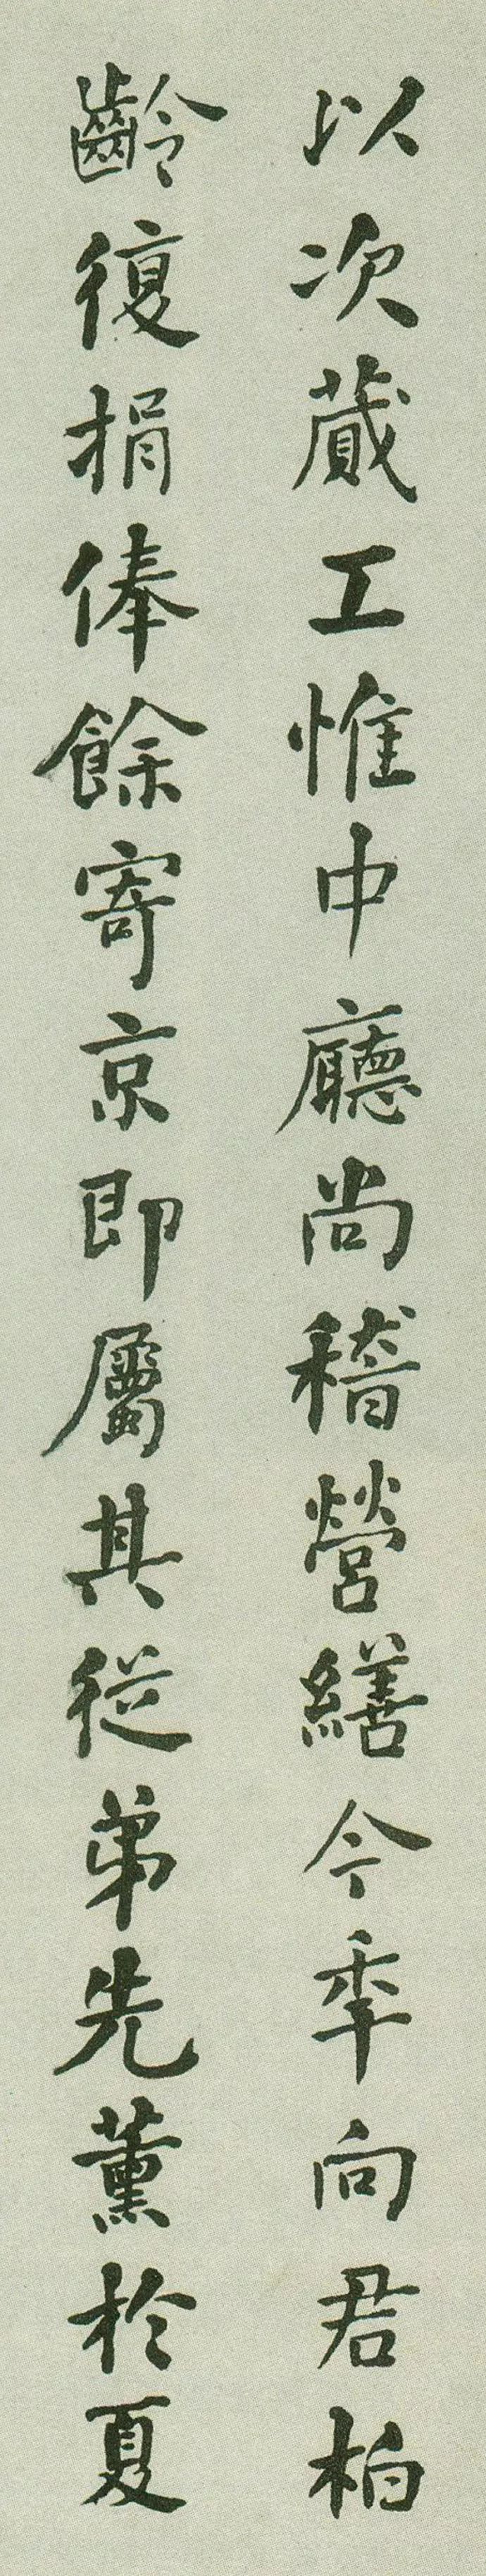 以次蕆工惟中廳尚稽營繕今秊向君柏
齡復捐俸餘寄京即屬其從弟先薰於夏